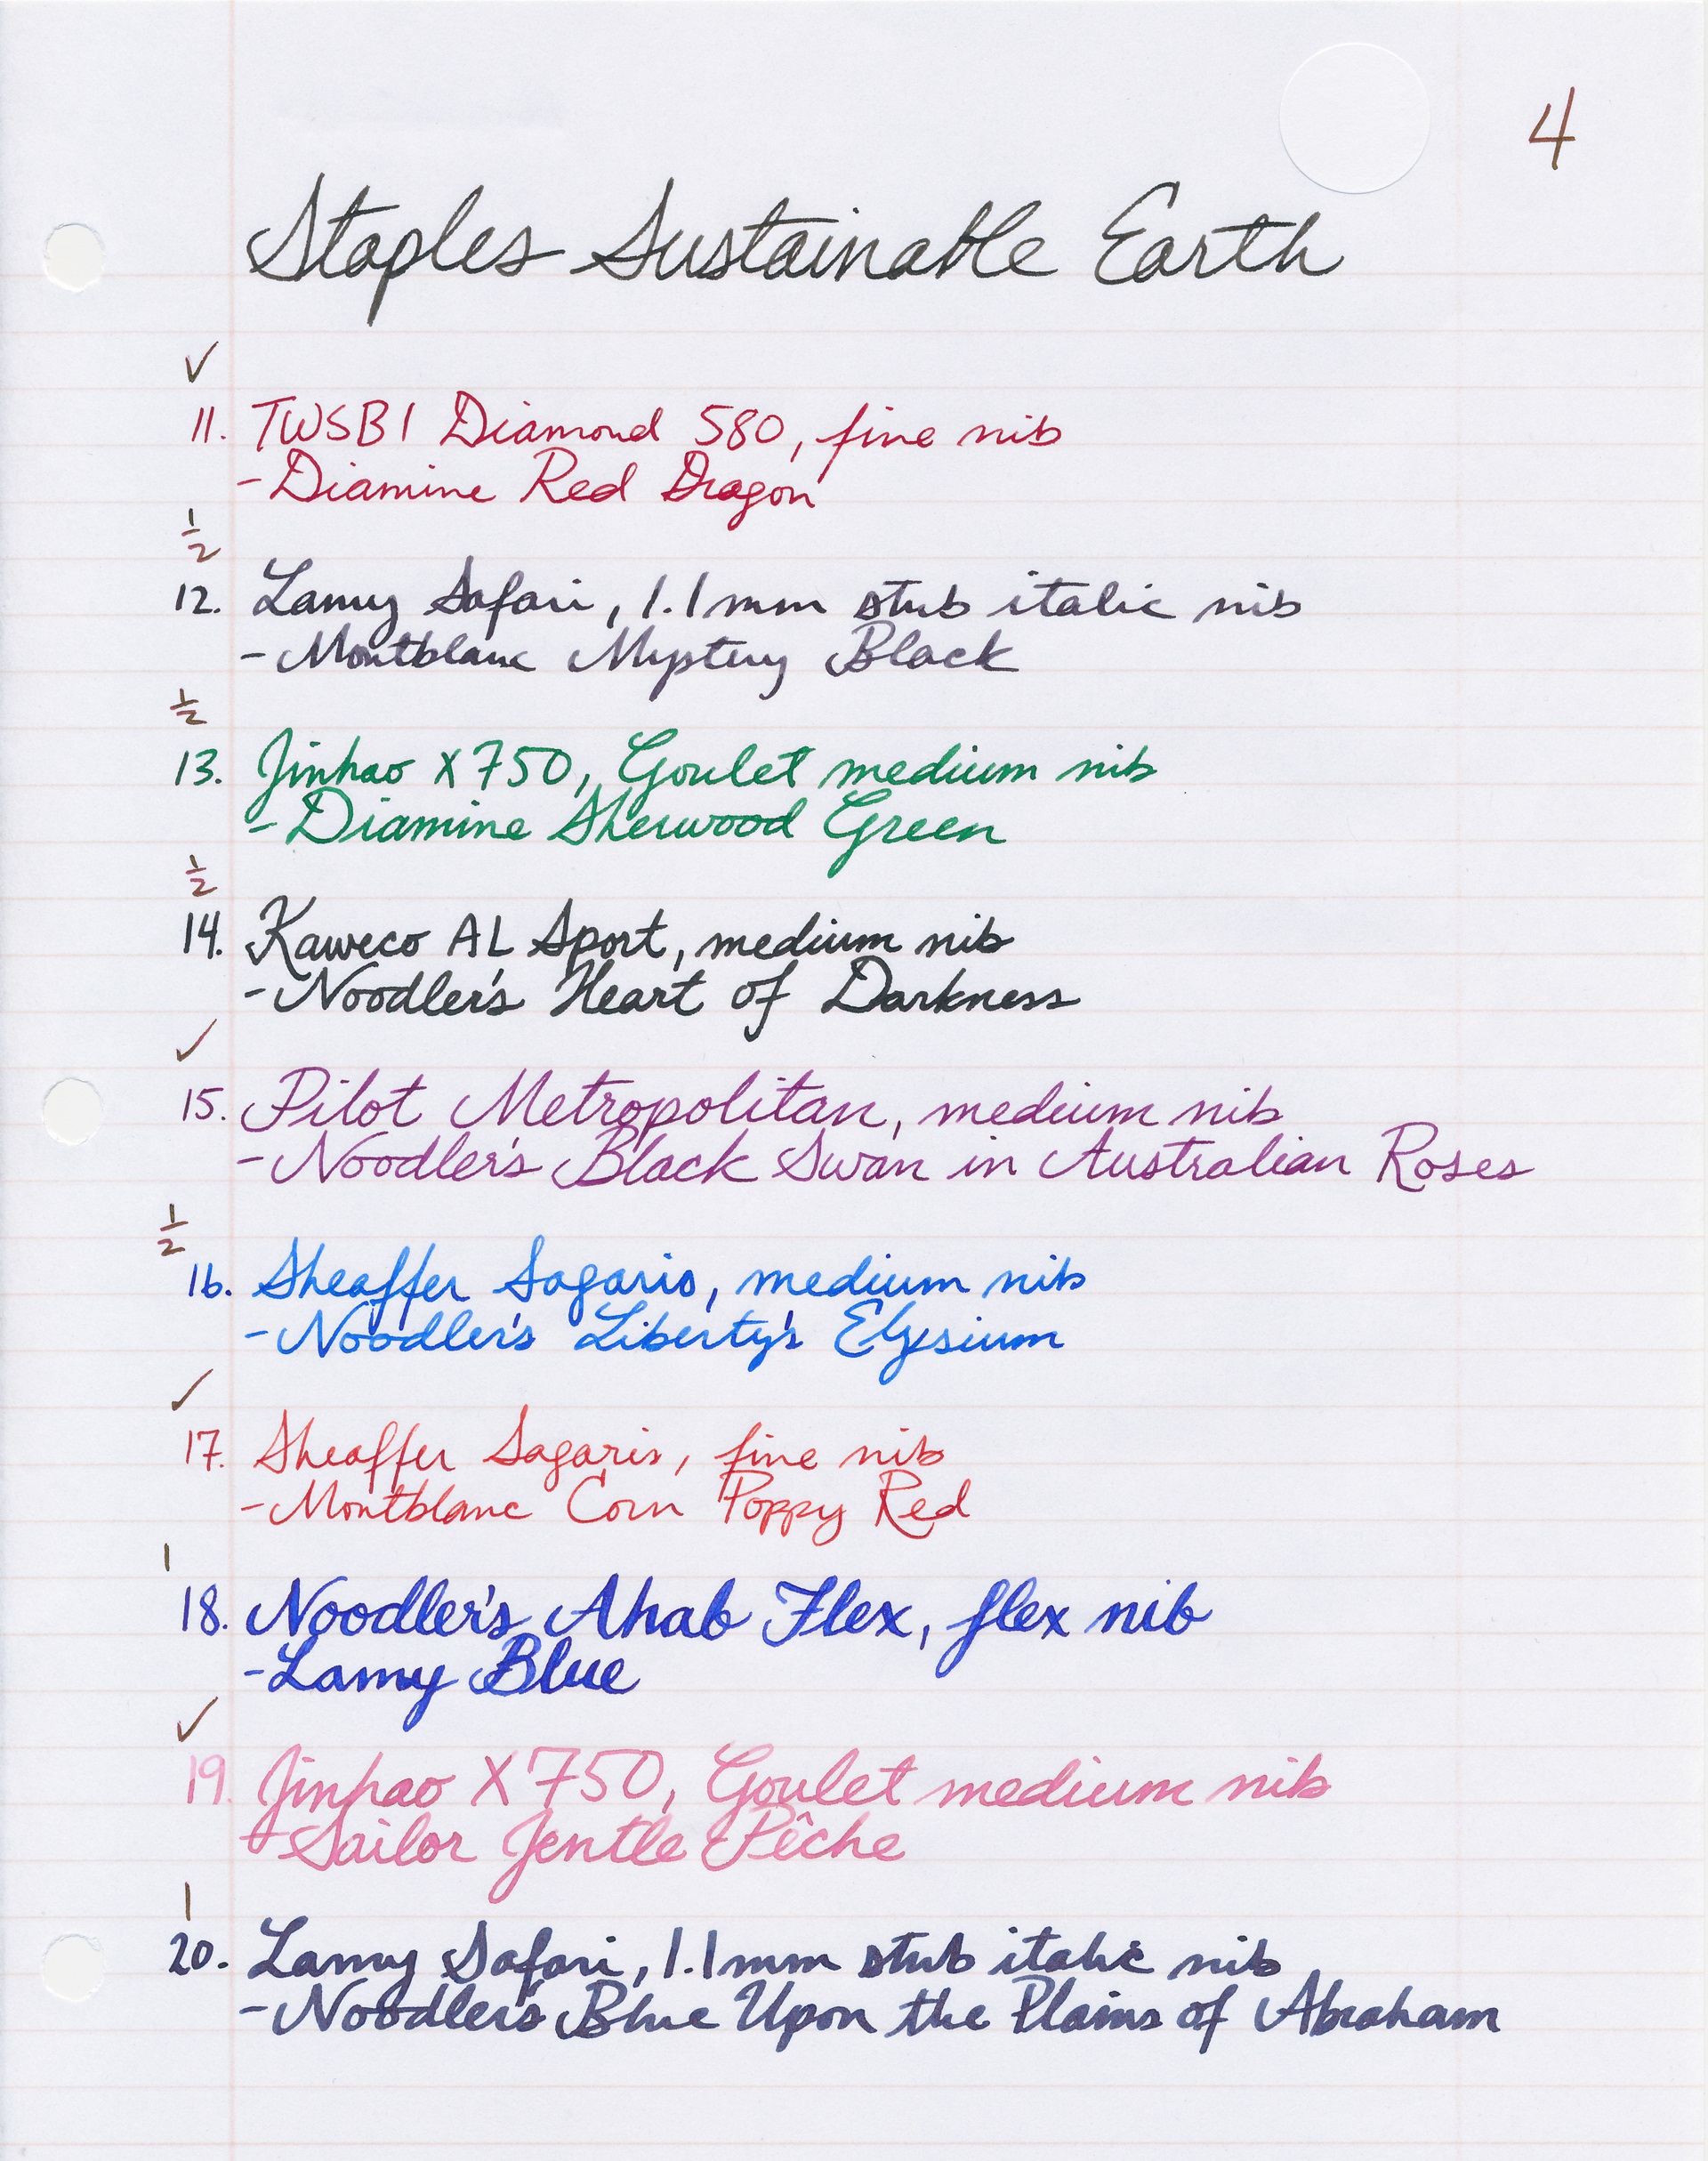 4
Staples Sustainable Earth
✓
11. TWSBI Diamond 580, fine nib
- Diamine Red Dragon
1/2
12. Lamy Safari, 1.1mm stub italic nib
- Montblanc Mystery Black
1/2
13. Jinhao X750, Goulet medium nib
- Diamine Sherwood Green
1/2
14. Kaweco AL Sport, medium nib
- Noodler's Heart of Darkness
✓
15. Pilot Metropolitan, medium nib
- Noodler's Black Swan in Australian Roses
1/2
16. Sheaffer Sagaris, medium nib
- Noodler's Liberty's Elysium
✓
17. Sheaffer Sagaris, fine nib
- Montblanc Corn Poppy Red
1
18. Noodler's Ahab Flex, flex nib
- Lamy Blue
✓
19. Jinhao X750, Goulet medium nib
- Sailor Jentle Pêche
1
20. Lamy Safari, 1.1mm stub italic nib
- Noodler's Blue Upon the Plains of Abraham